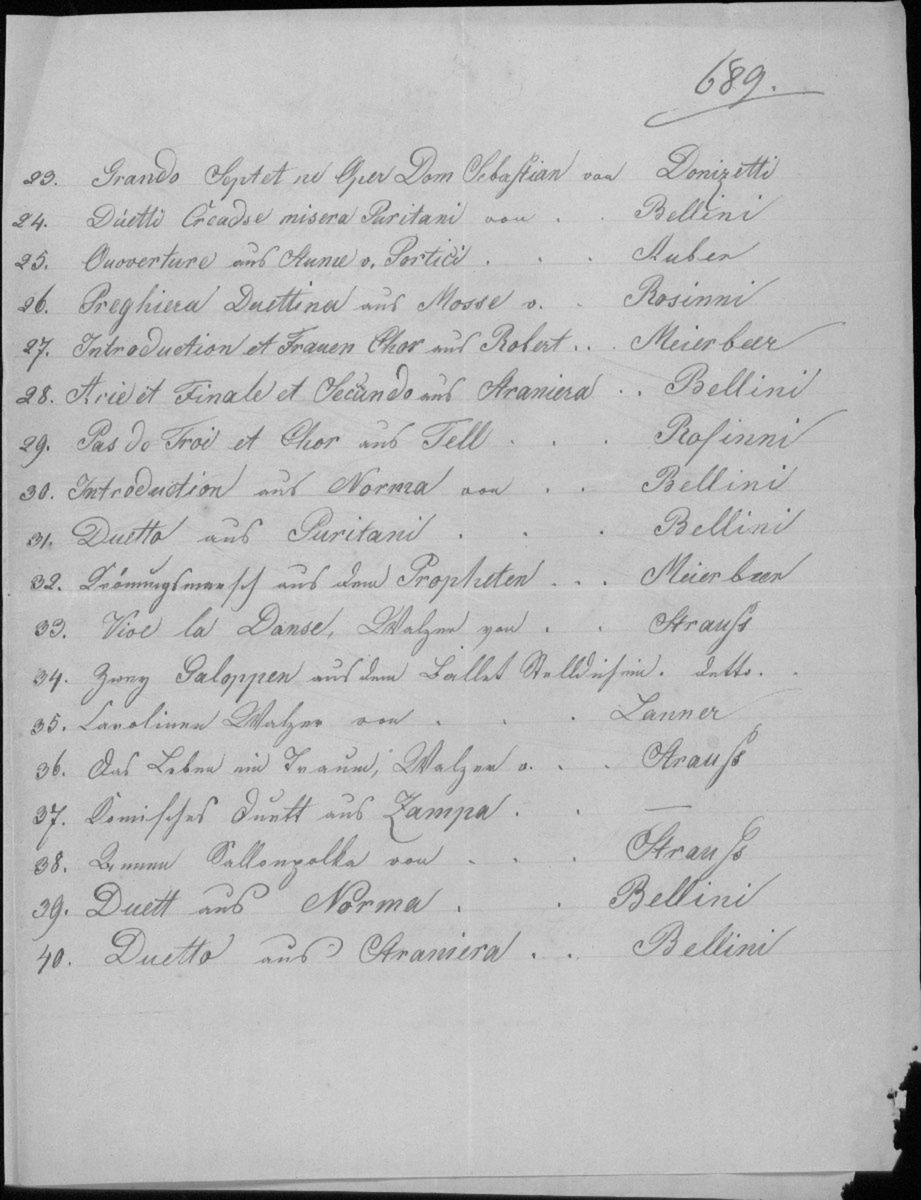 689.
23. Grando Septet in Oper Dom Sebastian von Donizetti
24. Duetti Creadse misera Puritani von . . Bellini
25. Ouoverture aus Stume v. Portici . . . Auber
26. Preghiera Duettina aus Mosse v. . Rosinni
27. Introduction et Frauen Chor aus Robert . . Meierbeer
28. Arie et Finale et Secundo aus Straniera . . Bellini
29. Pas de Troi et Chor aus Tell . . . Rosinni
30. Introduction aus Norma von . . Bellini
31. Duetto aus Puritani . . . Bellini
32. Krönungsmarsch aus dem Propheten . . . Meierbeer
33. Vive la Danse, Walzer von . . Strauss
34. Zwey Galoppen aus dem Ballet Stelldichein . detto . .
35. Carolinen Walzer von . . . Lanner
36. Das Leben ein Traum, Walzer v. . . Strauss
37. Komisches Duett aus Zampa . . —
38. Sallonpolka von . . . Strauss
39. Duett aus Norma . . Bellini
40. Duetto aus Straniera . . Bellini